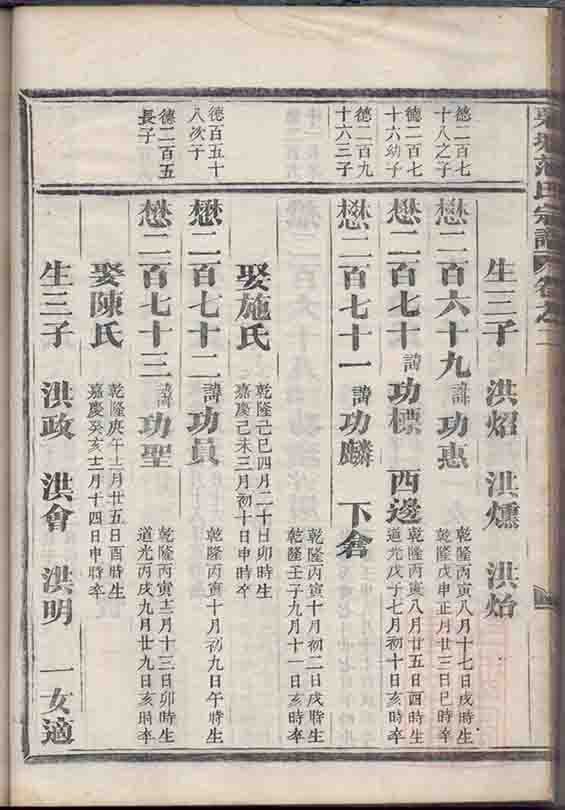 范氏宗譜 卷之二
生三子 洪炤 洪燻 洪炲
德二百七
十八之子
懋二百六十九 諱 功惠
乾隆丙寅八月十七日戌時生
乾隆戊申正月廿三日巳時卒
德二百七
十六幼子
懋二百七十 諱 功標 西邊
乾隆丙寅八月廿五日酉時生
道光戊子七月初十日亥時卒
德二百九
十六三子
懋二百七十一 諱 功麟 下倉
乾隆丙寅十月初二日戌時生
乾隆壬子九月十一日亥時卒
娶施氏
乾隆己巳四月二十日卯時生
嘉慶己未三月初十日申時卒
德百五十
八次子
懋二百七十二 諱 功員
乾隆丙寅十月初九日午時生
德二百五
長子
懋二百七十三 諱 功聖
乾隆丙寅十二月十三日卯時生
道光丙戌九月廿九日亥時卒
娶陳氏
乾隆庚午十二月廿五日酉時生
嘉慶癸亥十二月十四日申時卒
生三子 洪政 洪會 洪明 一女適